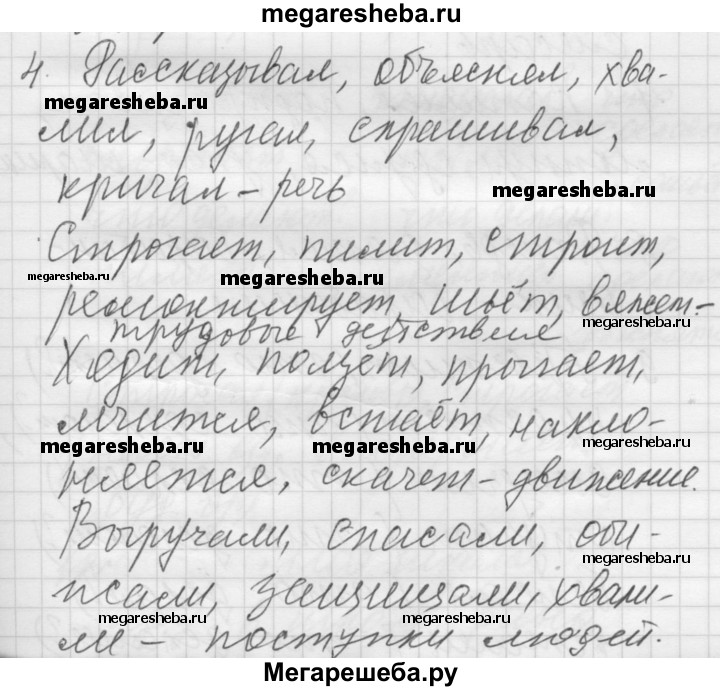 megaresheba.ru
4. Рассказывал, объяснял, хва-
megaresheba.ru
лил, ругал, спрашивал,
кричал – речь
megaresheba.ru
Строгает, пилит, строит,
megaresheba.ru
megaresheba.ru
ремонтирует, шьёт, вяжет –
megaresheba.ru
трудовые действия
Ходит, ползёт, прыгает,
megaresheba.ru
мчится, встаёт, накло-
megaresheba.ru
megaresheba.ru
megaresheba.ru
няется, скачет – движение.
Выручали, спасали, оби-
megaresheba.ru
жали, защищали, хвали-
megaresheba.ru
megaresheba.ru
ли – поступки людей.
Мегарешеба.ру